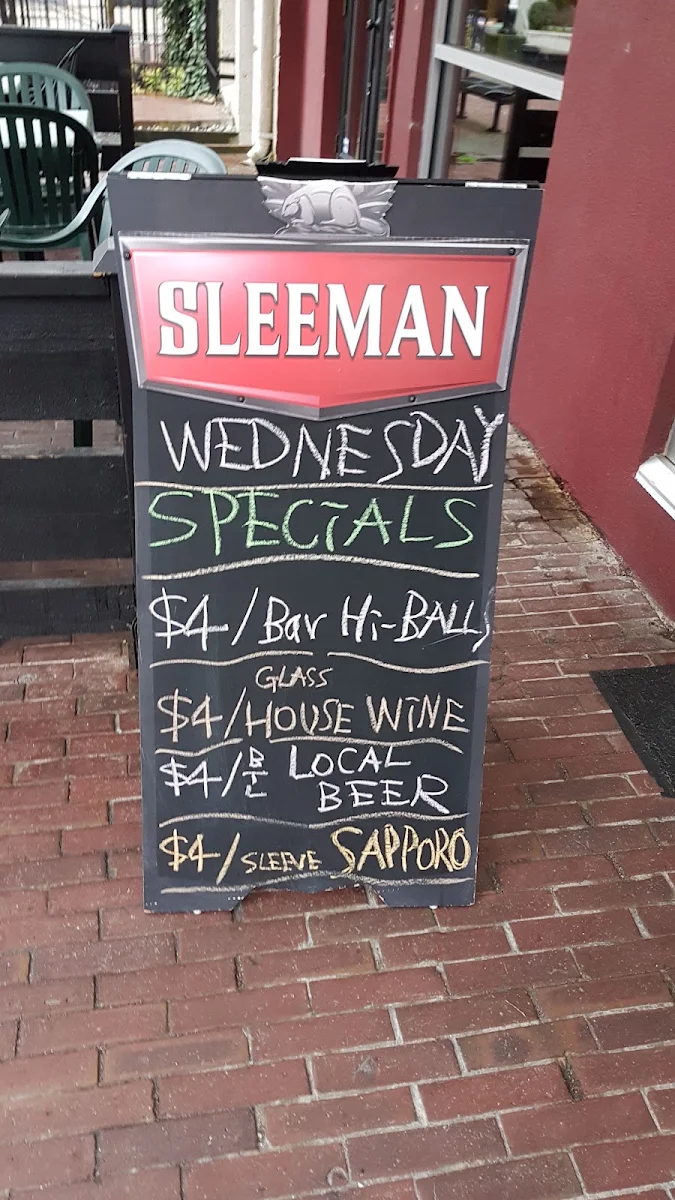 SLEEMAN
WEDNESDAY
SPECiALS
$4/Bar Hi-BALLS
GLASS
$4/HOUSE WiNE
$4/BTL LOCAL
BEER
$4/SLEEVE SAPPORO